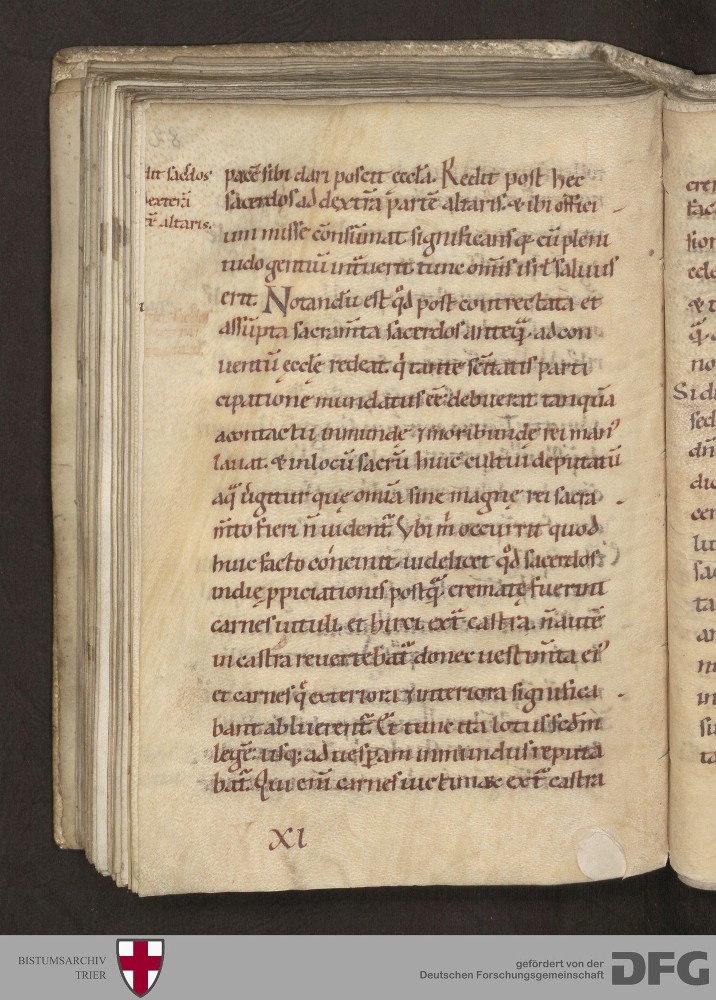 dit sacdos
dexterā
tē altaris.
pacē sibi dari poscit eccła. Redit post hec
sacerdos ad dextrā partē altaris. & ibi offici
um misse cōsūmat significans qđ cū pleni
tudo gentiū int̄uerit tunc om̄is isrł saluus
erit. Notandū est qđ post contrectata et
assūpta sacram̄ta sacerdos anteq̄ ad con
uentū ęcclę redeat. q̓ tante sc̄itatis parti
cipationę mundatus eē debuerat tanquā
a contactu inmundę & moribundę rei man᷒
lauat. & in locū sacrū huic cultui deputatū
aq̄ dirigitur quę om̄ia sine magnę rei sacra
m̄to fieri ñ uident̄. Vbi m̓ occurrit quod
huic facto cōcinit. uidelicet qđ sacerdos
in die ꝓpiciationis postq̄ crematę fuerint
carnes uituli. et hirci ext̄ castra. ñ autē
in castra reuertebat̄ donec uestim̄ta ei᷒
et carnes q̓ exteriora & interiora significa
bant abluerent̄. Et tunc ita lotus scd̄m
legē. usq; ad uesperam inmundus reputa
bat̄. Qui eni carnes uictimae ext̄ castra
XI
cer
eccle
no
Si di
sed
dic
cer
ta
in
su
BISTUMSARCHIV
TRIER
gefördert von der
Deutschen Forschungsgemeinschaft
DFG